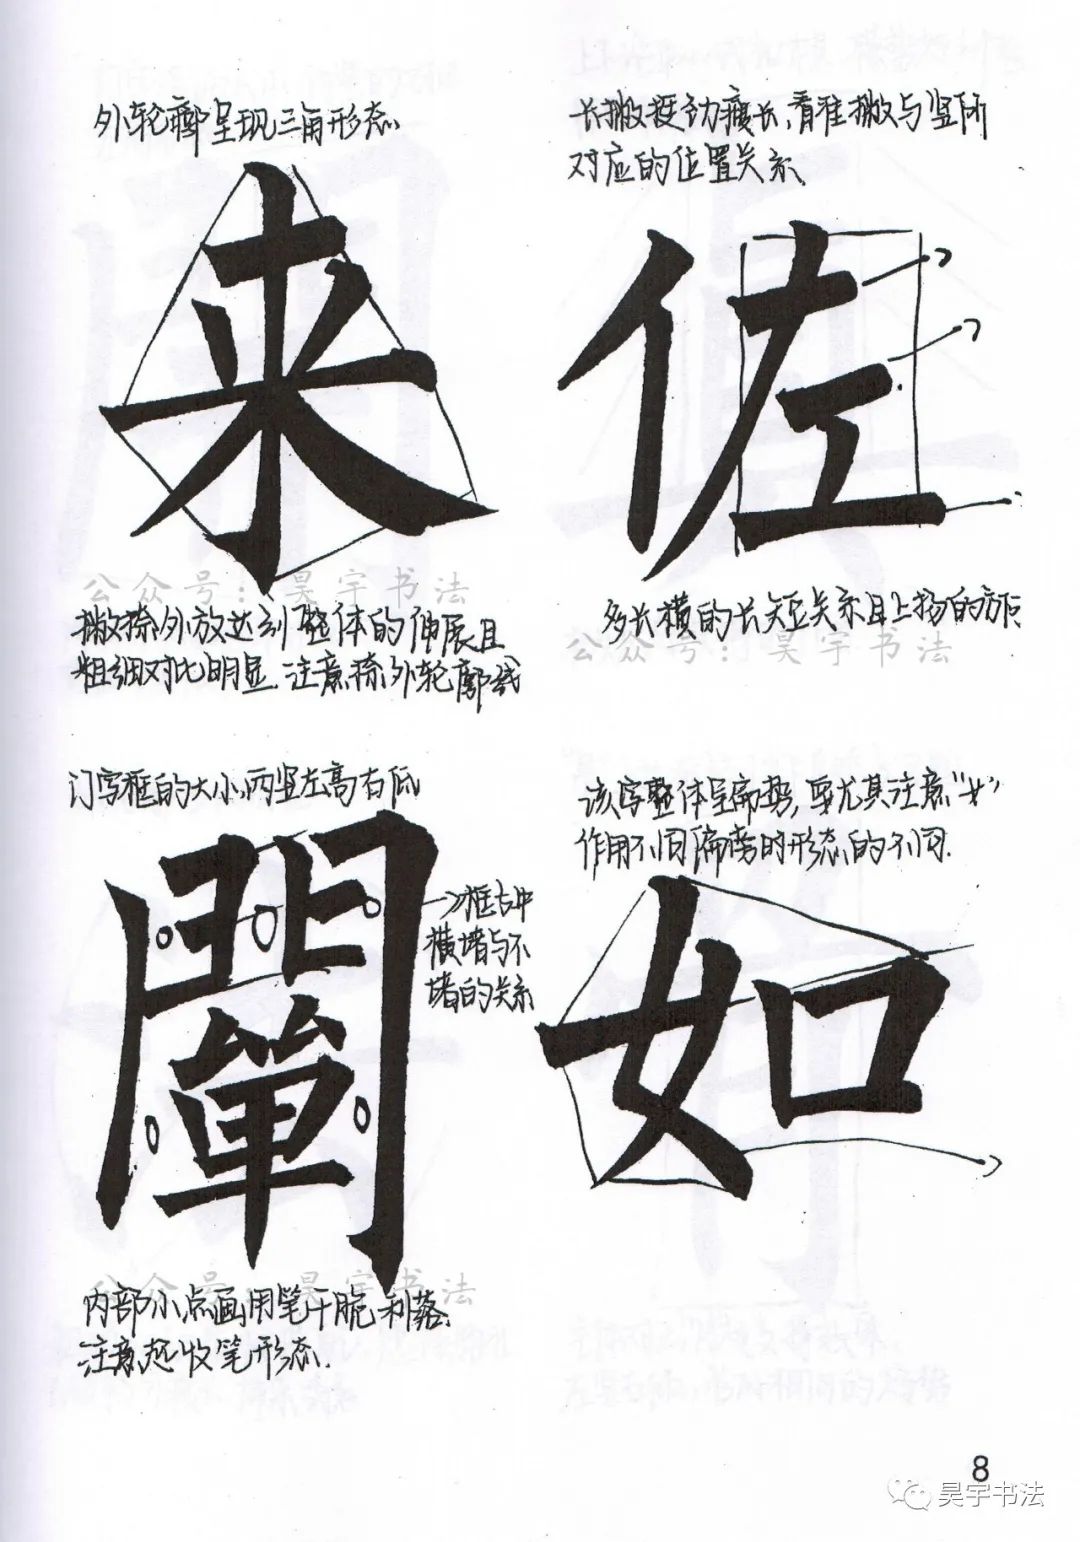 外轮廓呈现三角形态
来
公众号：昊宇书法
撇捺外放达到整体的伸展且
粗细对比明显.注意捺外轮廓线
长撇挺劲瘦长,看准撇与竖所
对应的位置关系
佐
多长横的长短关系且上扬的方向
公众号：昊宇书法
门字框的大小,两竖左高右低
闡
→框右中
横堵与不
堵的关系
公众号：昊宇书法
内部小点画用笔干脆利落.
注意起收笔形态.
该字整体呈扁势,要尤其注意“女”
作用不同偏旁时形态的不同.
如
8
昊宇书法